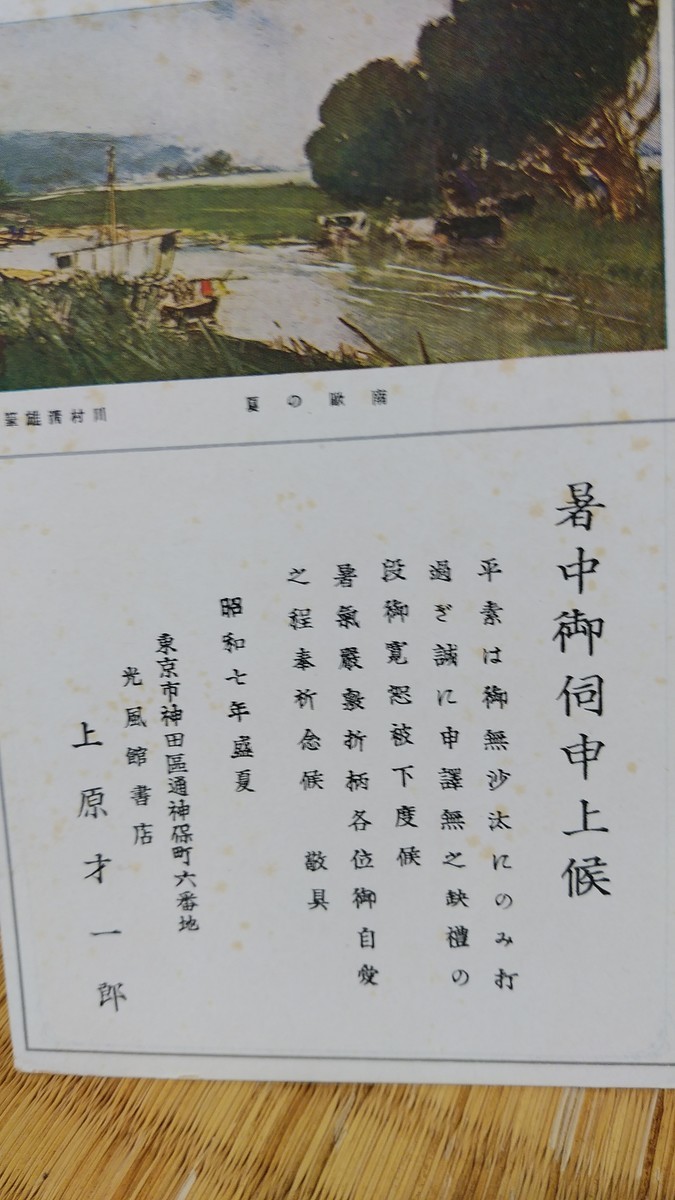 南欧の夏
川村清雄筆
暑中御伺申上候
平素は御無沙汰にのみ打
過ぎ誠に申譯無之缺禮の
段御寛恕被下度候
暑氣嚴敷折柄各位御自愛
之程奉祈念候　敬具
昭和七年盛夏
東京市神田區通神保町六番地
光風館書店
上原才一郎